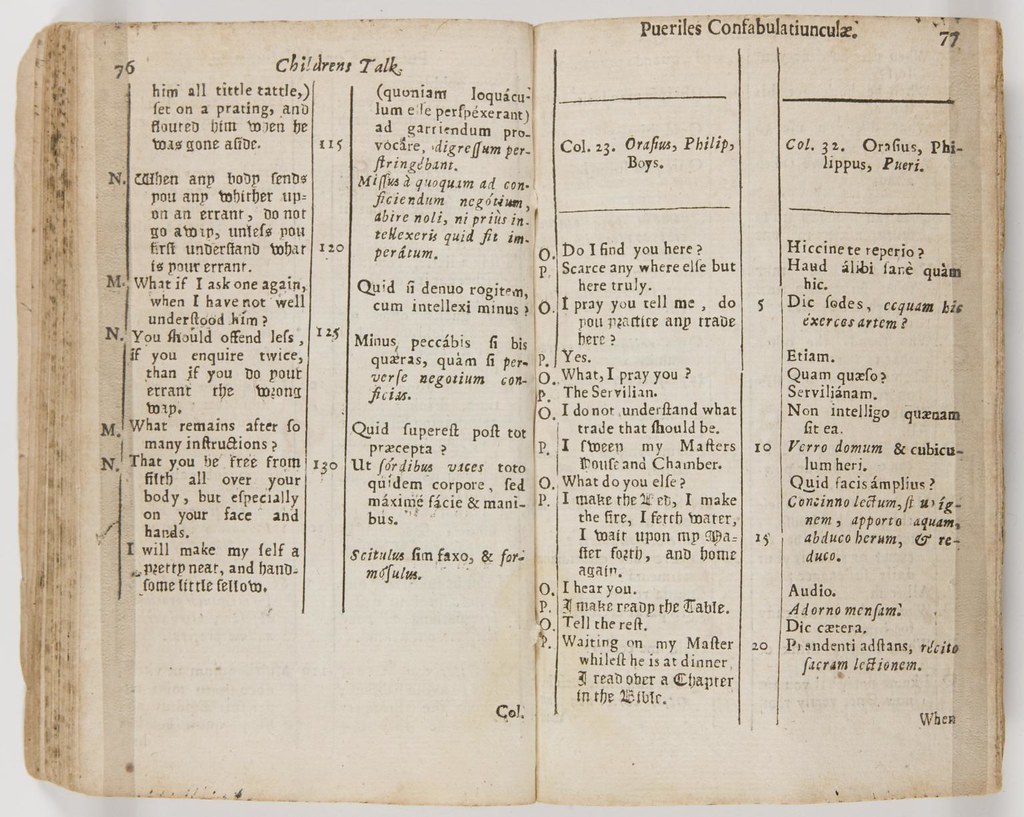 76
Childrens Talk,
him all tittle tattle,)
ſet on a prating, and
flouted him when he
was gone aſide.
N. When any body ſends
you any whither up-
on an errant, do not
go away, unleſs you
firſt underſtand what
is your errant.
M. What if I ask one again,
when I have not well
underſtood him?
N. You ſhould offend leſs,
if you enquire twice,
than if you do your
errant the wrong
way.
M. What remains after ſo
many inſtructions?
N. That you be free from
filth all over your
body, but eſpecially
on your face and
hands.
I will make my ſelf a
pretty neat, and hand-
ſome little fellow.
115
120
125
130
(quoniam loquácu-
lum eſſe perſpéxerant)
ad garriendum pro-
vocâre, digreſſum per-
ſtringébant.
Miſſus à quoquam ad con-
ficiendum negótium,
abire noli, ni priùs in-
tellexeris quid ſit im-
perátum.
Quid ſi denuo rogitem,
cum intellexi minus?
Minus peccábis ſi bis
quæras, quàm ſi per-
verſe negotium con-
ficias.
Quid ſupereſt poſt tot
præcepta?
Ut ſórdibus vaces toto
quidem corpore, ſed
máximè fácie & mani-
bus.
Scitulus ſim faxo, & for-
móſulus.
Col.
Pueriles Confabulatiunculæ.
77
Col. 23. Oraſius, Philip,
Boys.
O. Do I find you here?
P. Scarce any where elſe but
here truly.
O. I pray you tell me, do
you practice any trade
here?
P. Yes.
O. What, I pray you?
P. The Servilian.
O. I do not underſtand what
trade that ſhould be.
P. I ſweep my Maſters
Houſe and Chamber.
O. What do you elſe?
P. I make the Bed, I make
the fire, I fetch water,
I wait upon my Ma-
ſter forth, and home
again.
O. I hear you.
P. I make ready the Table.
O. Tell the reſt.
P. Waiting on my Maſter
whileſt he is at dinner,
I read over a Chapter
in the Bible.
5
10
15
20
Col. 32. Oraſius, Phi-
lippus, Pueri.
Hiccine te reperio?
Haud álibi ſanè quàm
hic.
Dic ſodes, ecquam hîc
éxerces artem?
Etiam.
Quam quæſo?
Serviliánam.
Non intelligo quænam
ſit ea.
Verro domum & cubicu-
lum heri.
Quid facis ámplius?
Concinno lectum, ſtruo íg-
nem, apporto aquam,
abduco herum, & re-
duco.
Audio.
Adorno menſam.
Dic cætera.
Prandenti adſtans, récito
ſacram lectionem.
When